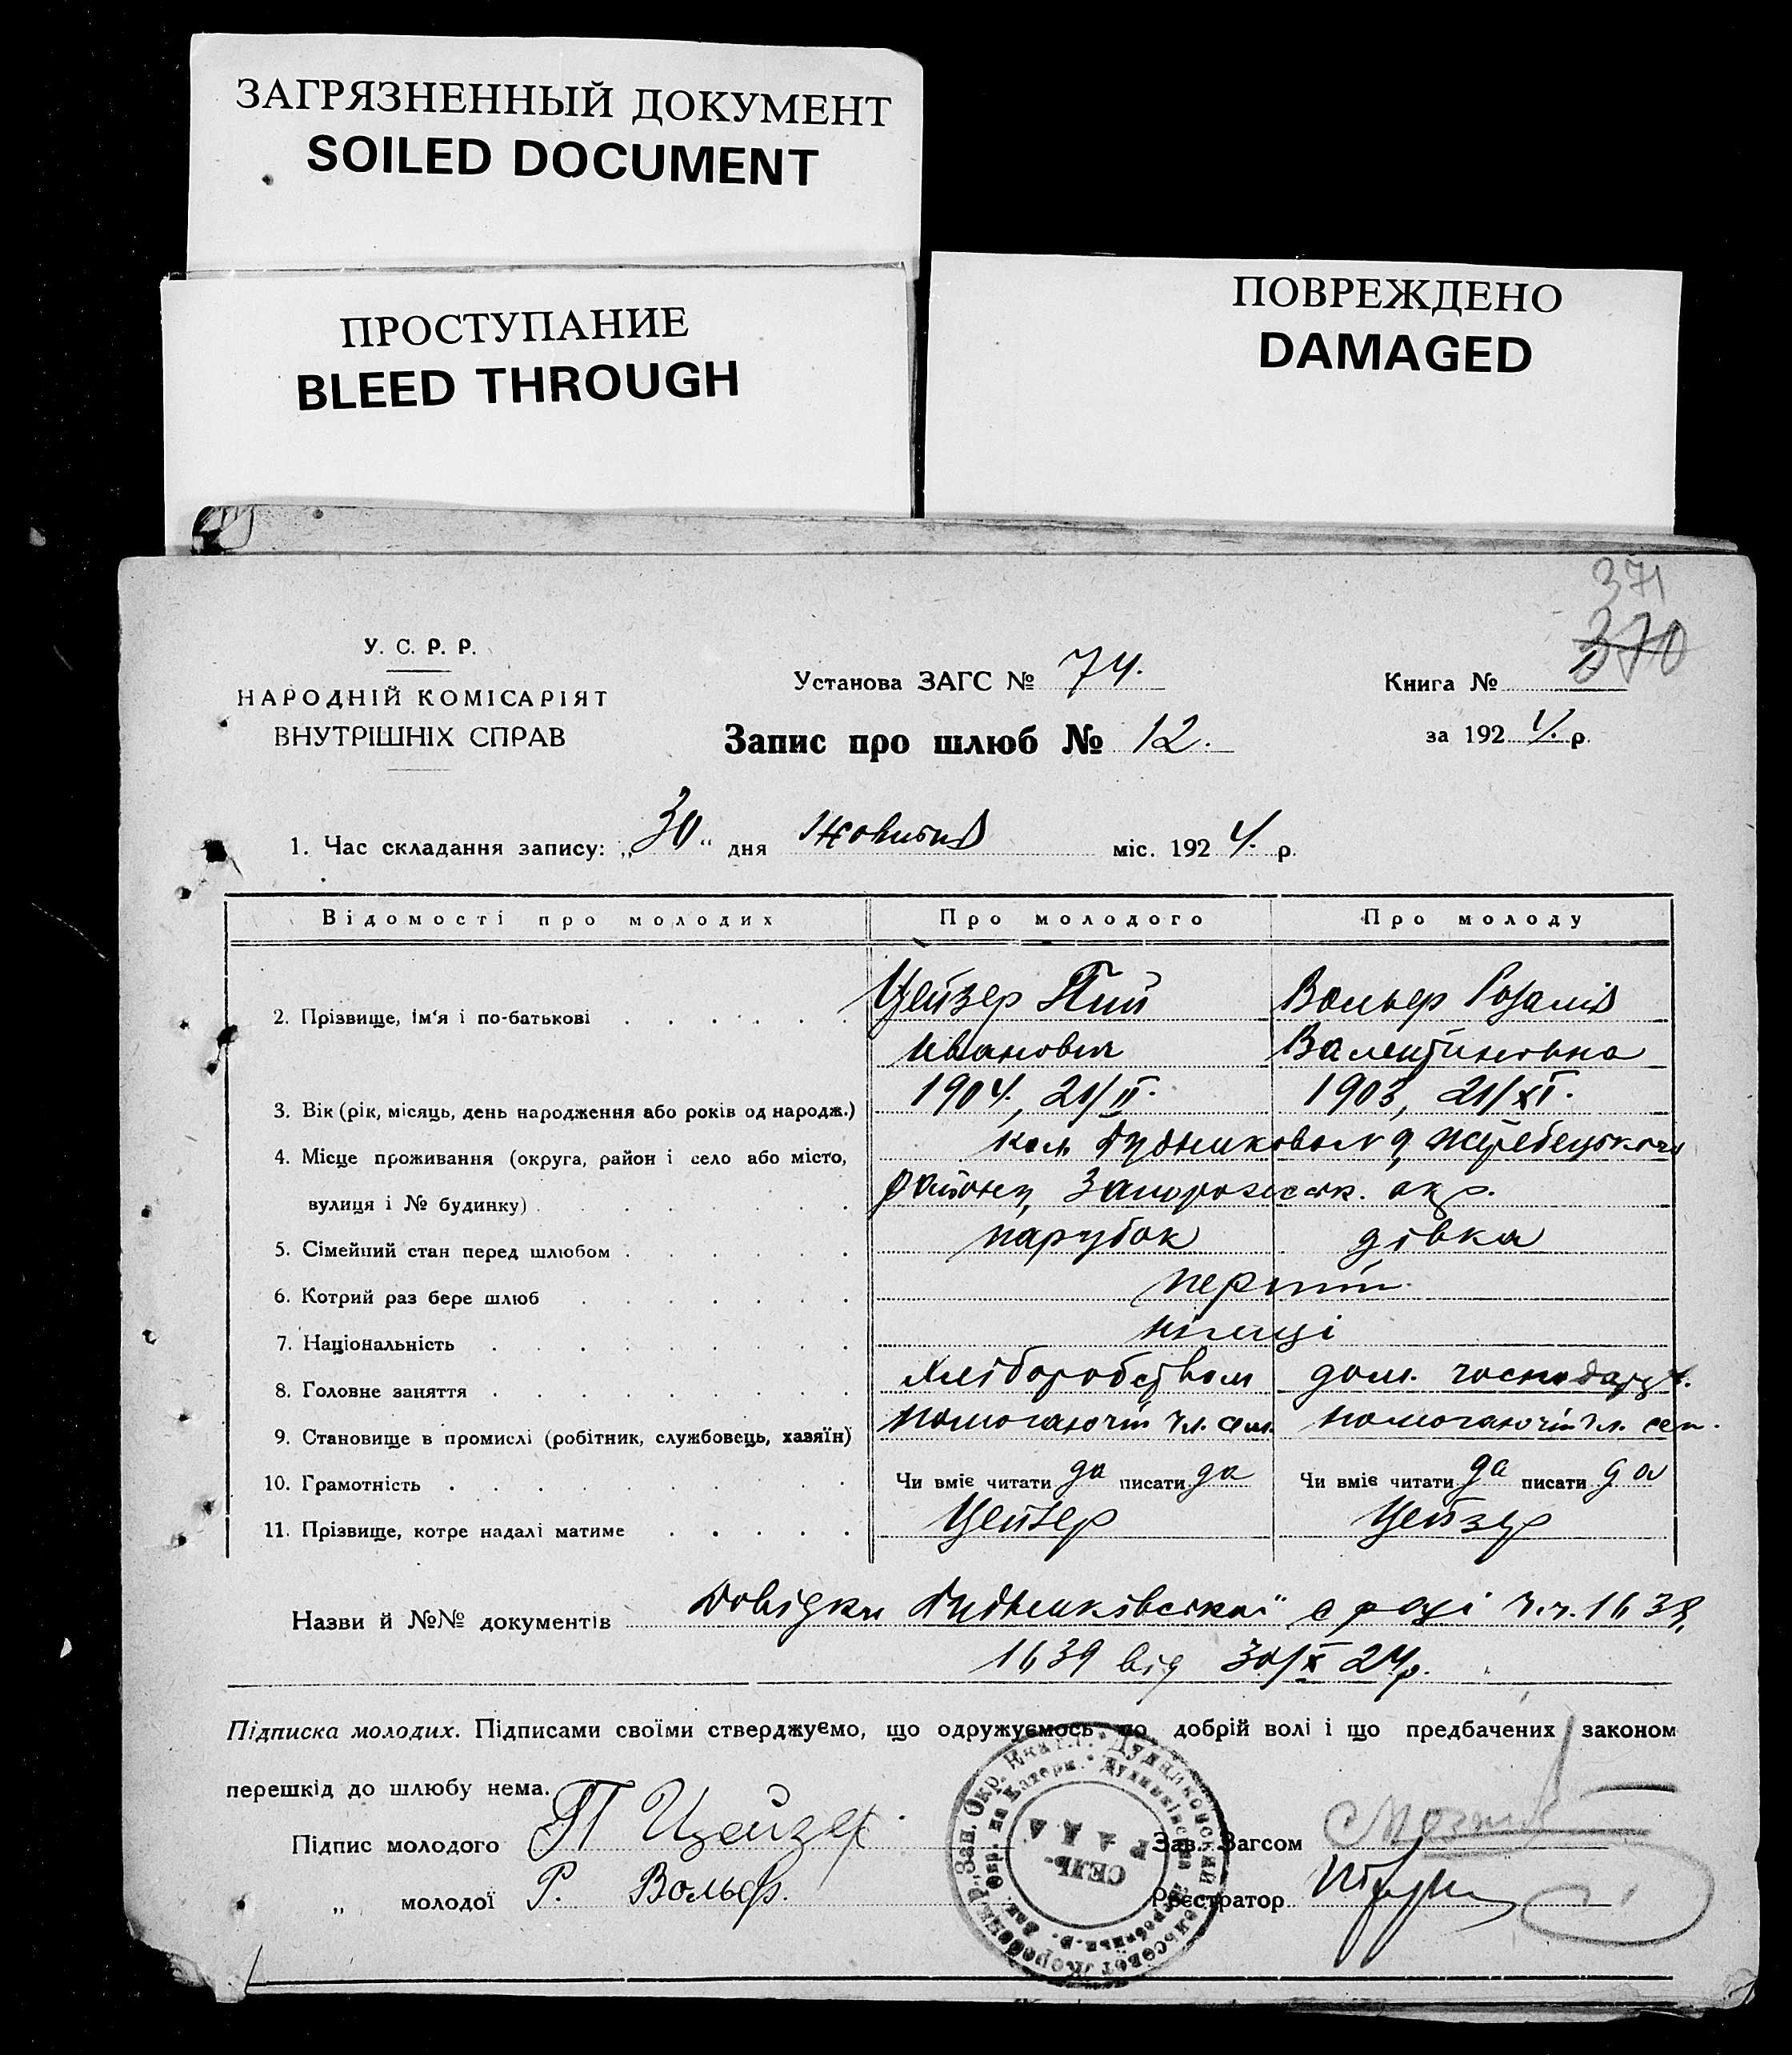 ЗАГРЯЗНЕННЫЙ ДОКУМЕНТ
SOILED DOCUMENT
ПРОСТУПАНИЕ
BLEED THROUGH
ПОВРЕЖДЕНО
DAMAGED
371
370
У. С. Р. Р.
НАРОДНІЙ КОМІСАРІЯТ
ВНУТРІШНІХ СПРАВ
Установа ЗАГС № 74.
Запис про шлюб № 12.
Книга №
за 1924. р.
1. Час складання запису: „30" дня Жовтня міс. 1924. р.
Відомості про молодих Про молодого Про молоду
2. Прізвище, ім'я і по-батькові Цейзер Пий Вольф Розалія
Иванович Валентиновна
3. Вік (рік, місяць, день народження або років од народж.) 1904, 21/II. 1903, 21/XI.
4. Місце проживання (округа, район і село або місто, кол. Жеребецького
вулиця і № будинку) району, Запорожськ. окр.
5. Сімейний стан перед шлюбом парубок дівка
6. Котрий раз бере шлюб перший
7. Національність німці
8. Головне заняття хліборобством дом. господар.
9. Становище в промислі (робітник, службовець, хазяїн) помогаючий чл. сем. помогаючий чл. сем.
10. Грамотність Чи вміє читати да писати да Чи вміє читати да писати да
11. Прізвище, котре надалі матиме Цейзер Цейзер
Назви й №№ документів Довідки с ради ч.ч. 1638,
1639 від 30/X 24р.
Підписка молодих. Підписами своїми стверджуємо, що одружуємось по добрій волі і що предбачених законом
перешкід до шлюбу нема.
Підпис молодого П Цейзер
Зав. Загсом
„ молодої Р. Вольф.
Реєстратор
СЕЛЬ-
РАДА